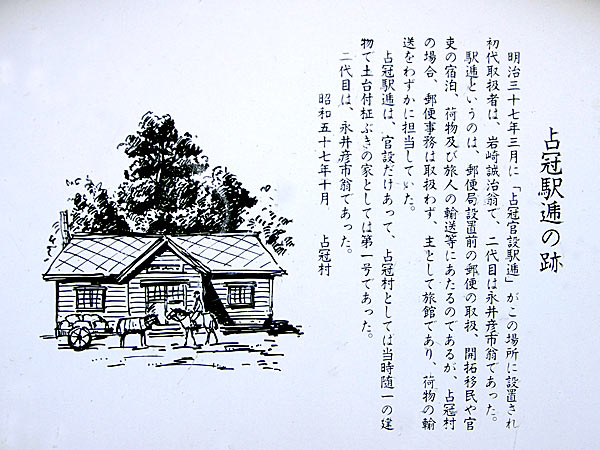 占冠駅逓の跡
明治三十七年三月に「占冠官設駅逓」がこの場所に設置され
初代取扱者は、岩崎誠治翁で、二代目は永井彦市翁であった。
駅逓というのは、郵便局設置前の郵便の取扱、開拓移民や官
吏の宿泊、荷物及び旅人の輸送等にあたるのであるが、占冠村
の場合、郵便事務は取扱わず、主として旅館であり、荷物の輸
送をわずかに担当していた。
占冠駅逓は、官設だけあって、占冠村としては当時随一の建
物で土台付柾ぶきの家としては第一号であった。
二代目は、永井彦市翁であった。
昭和五十七年十月 占冠村